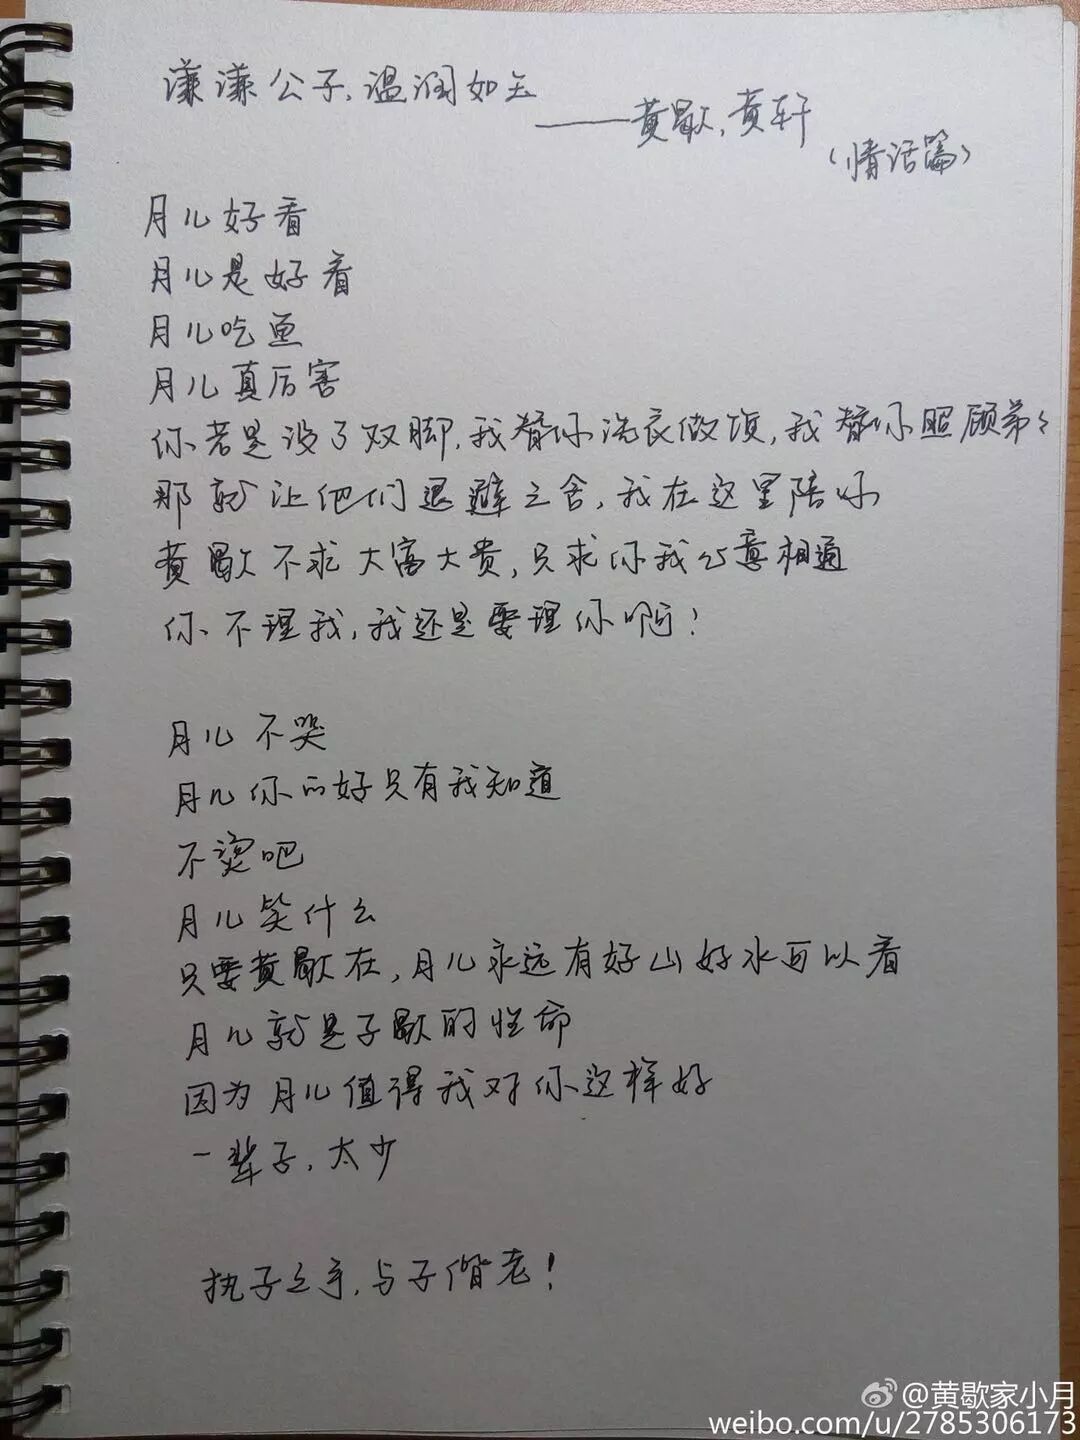 谦谦公子,温润如玉
——黄歇,黄轩
(情话篇)
月儿好看
月儿是好看
月儿吃鱼
月儿真厉害
你若是没了双脚,我替你洗衣做饭,我替你照顾弟弟
那就让他们退避三舍,我在这里陪你
黄歇不求大富大贵,只求你我心意相通
你不理我,我还是要理你啊!
月儿不哭
月儿你的好只有我知道
不烫吧
月儿笑什么
只要黄歇在,月儿永远有好山好水可以看
月儿就是子歇的性命
因为月儿值得我对你这样好
一辈子,太少
执子之手,与子偕老!
@黄歇家小月
weibo.com/u/2785306173